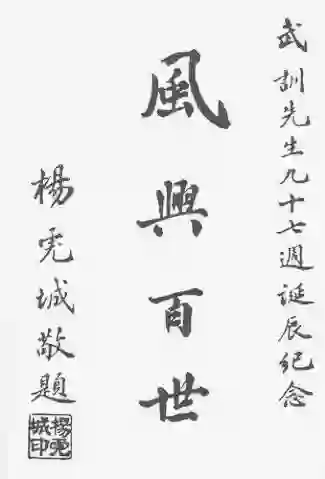 武訓先生九十七週誕辰紀念
風興百世
楊虎城敬題
楊虎城印